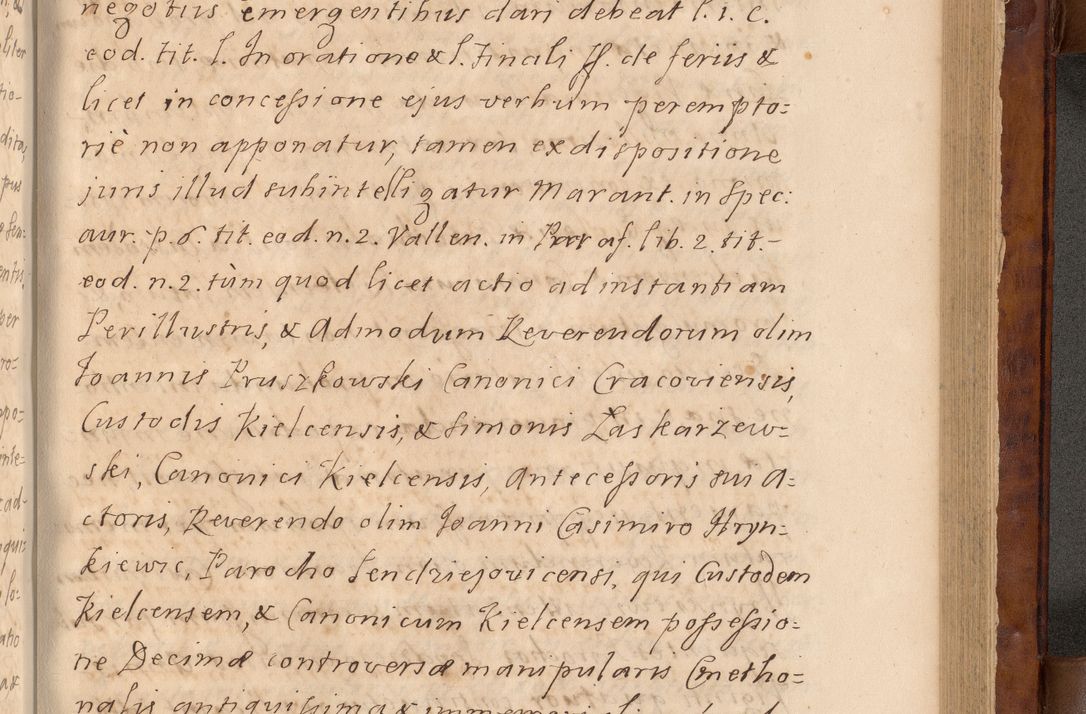 negotiis emergentibus dari debeat l. 1. C.
eod. tit. l. In oratione & l. Finali ff. de feriis &
licet in concessione ejus verbum perempto=
riè non apponatur, tamen ex dispositione
juris illud subintelligatur Marant. in Spec:
aur. p. 6. tit. eod. n. 2. Vallen. in Par af. lib. 2. tit.-
eod. n. 2. tùm quod licet actio ad instantiam
Perillustris, & Admodum Reverendorum olim
Joannis Pruszkowski Canonici Cracoviensis,
Custodis Kielcensis, & Simonis Laskarzew=
ski, Canonici Kielcensis, Antecessoris sui A=
ctoris, Reverendo olim Joanni Casimiro Hryn=
kiewic, Parocho Sendziejovicensi, qui Custodem
Kielcensem, & Canonicum Kielcensem possessio=
ne Decimæ controversæ manipularis Cmetho=
nalis antiquissima & immemoriali